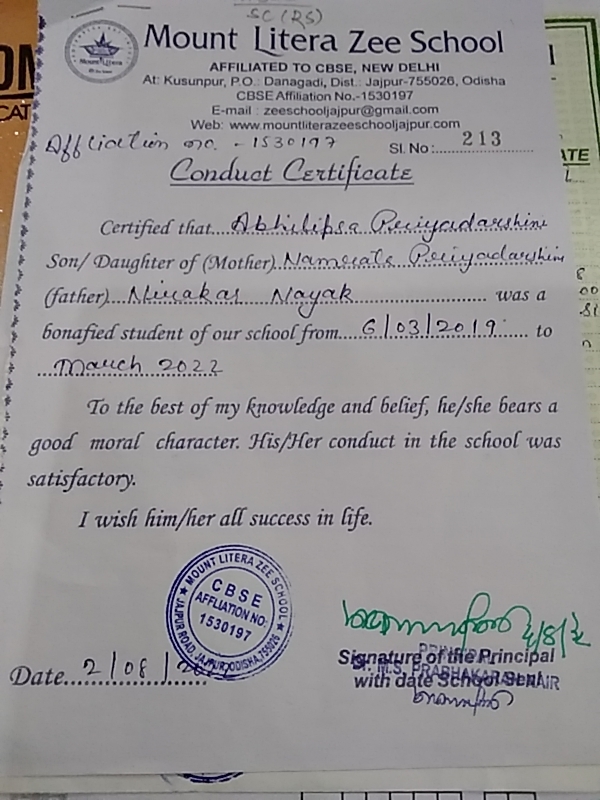 SC (RS)
Mount Litera Zee School
AFFILIATED TO CBSE, NEW DELHI
At: Kusunpur, P.O.: Danagadi, Dist.: Jajpur-755026, Odisha
CBSE Affiliation No.-1530197
E-mail : zeeschooljajpur@gmail.com
Web: www.mountliterazeeschooljajpur.com
Affliction no. - 1530197
Sl. No:..........213
Conduct Certificate
Certified that...Abhilipsa Priyadarshini
Son/ Daughter of (Mother) Namrata Priyadarshini
(father)...Minakar Nayak............... was a
bonafied student of our school from....6/03/2019..... to
...March 2022
To the best of my knowledge and belief, he/she bears a
good moral character. His/Her conduct in the school was
satisfactory.
I wish him/her all success in life.
MOUNT LITERA ZEE SCHOOL
CBSE
AFFLIATION NO:
1530197
JAJPUR ROAD, JAJPUR, ODISHA, 755026
Date....2/08/
Signature of the Principal
with date School Seal
PRINCIPAL
M.S. PRABHAKARAN NAIR